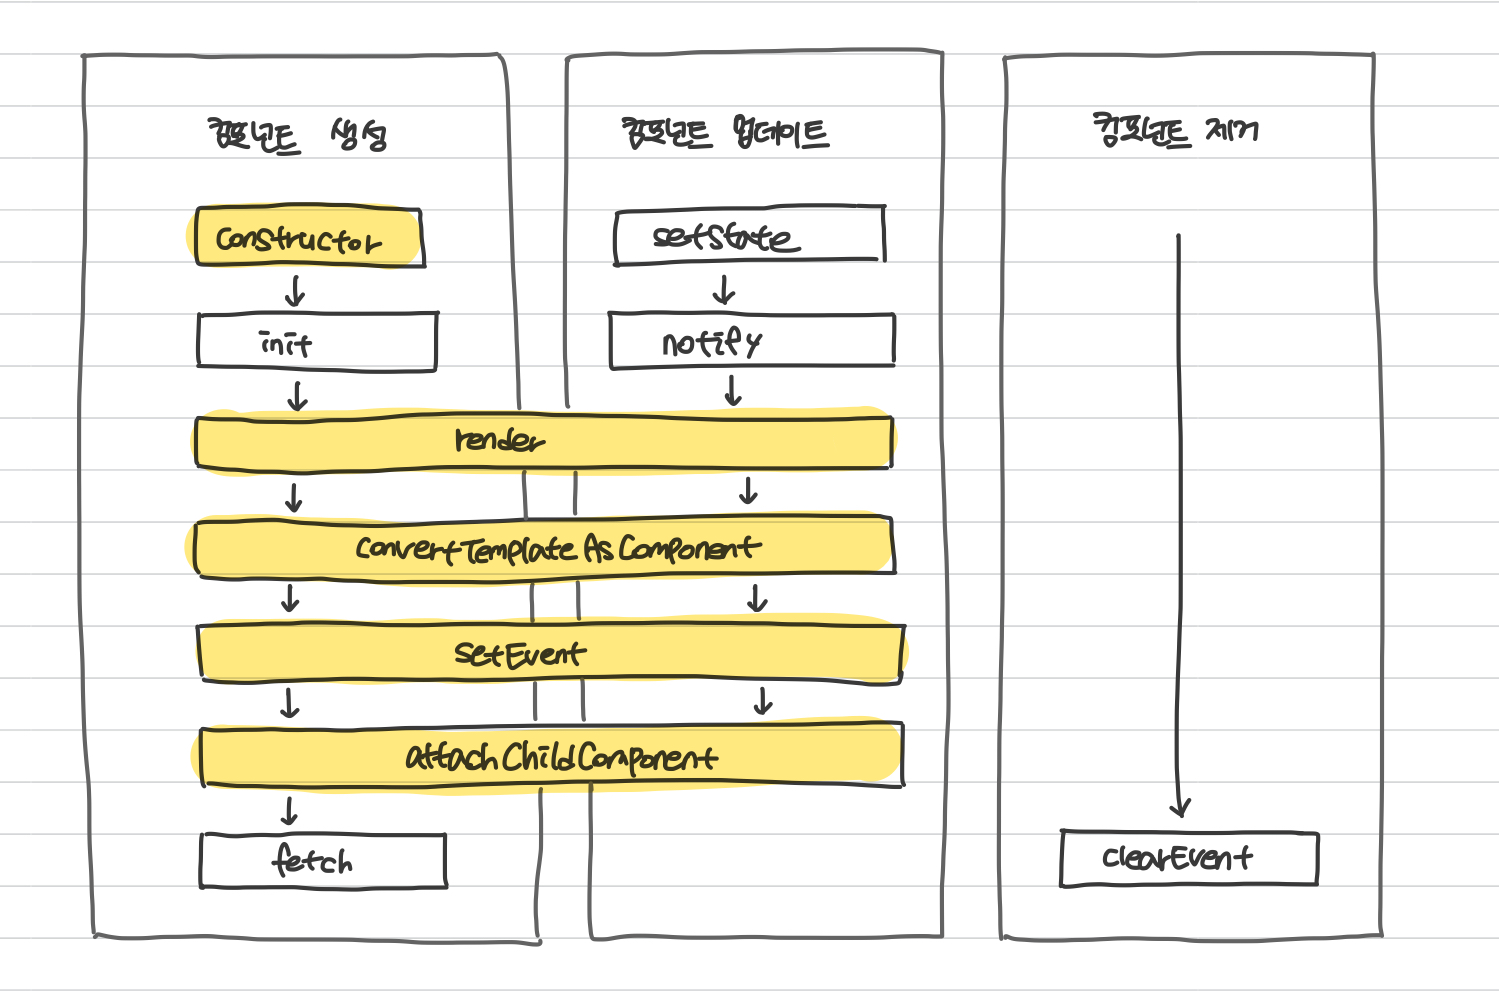 컴포넌트 생성
constructor
init
컴포넌트 업데이트
setState
notify
render
convertTemplateAsComponent
setEvent
attachChildComponent
fetch
컴포넌트 제거
clearEvent